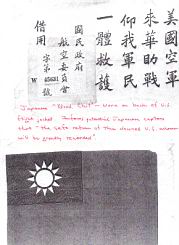 美國空軍
來華助戰
仰我軍民
一體救護
國民政府
航空委員會
字第 號
W
借用
Japanese "Blood Chit" - Worn on back of U.S.
flight jacket. Informs potential Japanese captors
that "the safe return of this downed U.S. airman
will be greatly rewarded".